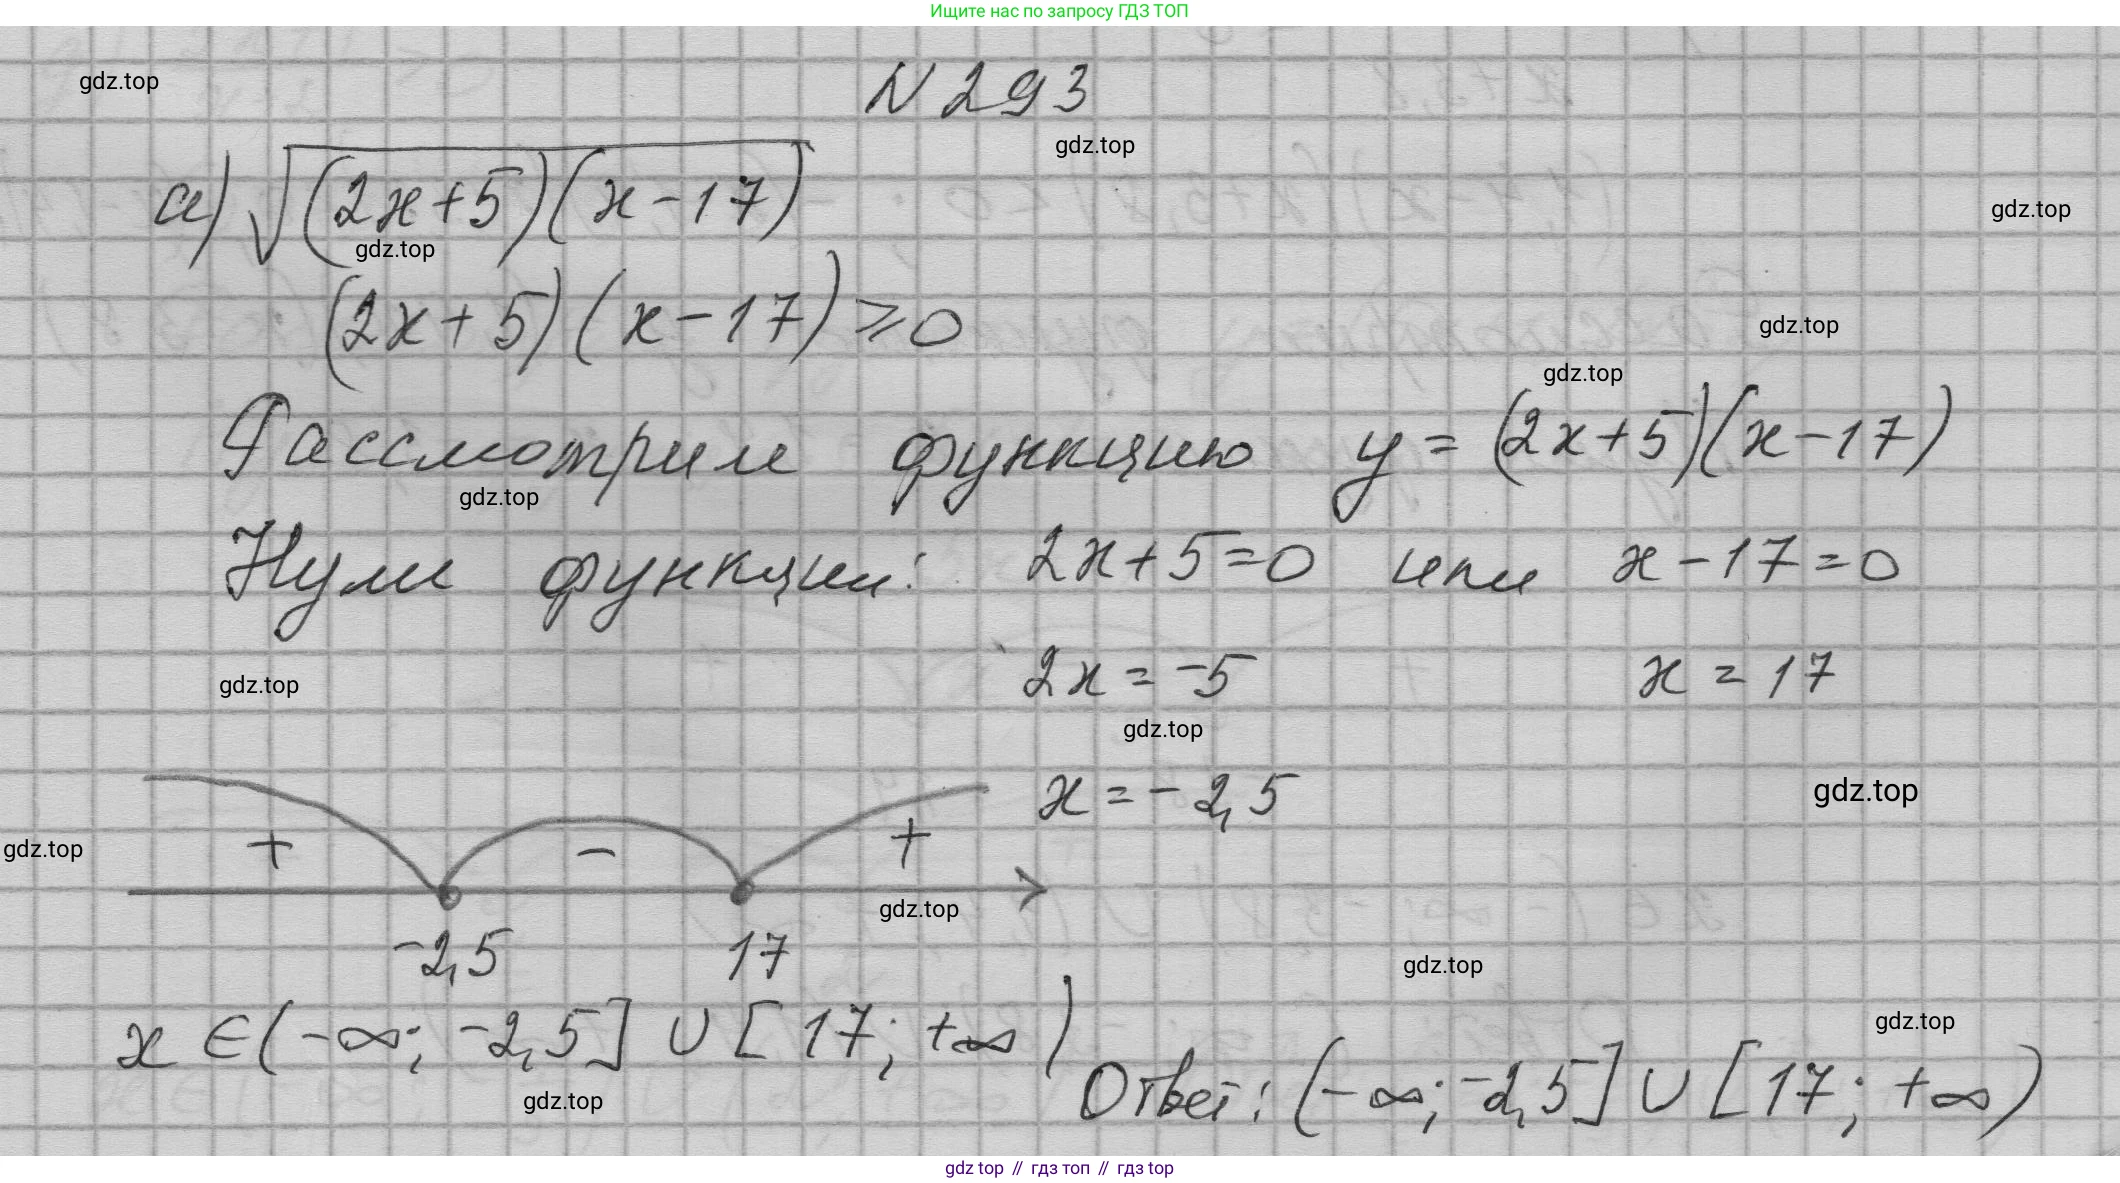 Ищите нас по запросу ГДЗ ТОП
gdz.top
N 293
gdz.top
а) √(2x+5)(x-17)
gdz.top
gdz.top
(2x+5)(x-17)⩾0
gdz.top
gdz.top
Рассмотрим функцию y = (2x+5)(x-17)
gdz.top
Нули функции: 2x+5=0 или x-17=0
gdz.top
2x = -5 x = 17
gdz.top
x = -2,5
gdz.top
gdz.top
+ - +
gdz.top
-2,5 17
gdz.top
x ∈ (-∞; -2,5] ∪ [17; +∞)
gdz.top
Ответ: (-∞; -2,5] ∪ [17; +∞)
gdz.top
gdz top // гдз топ // гдз top